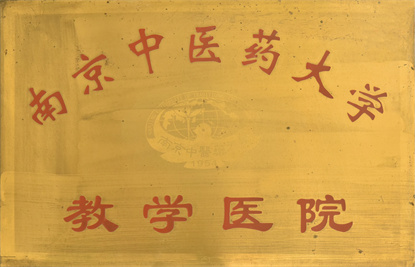 南京中医药大学
教学医院